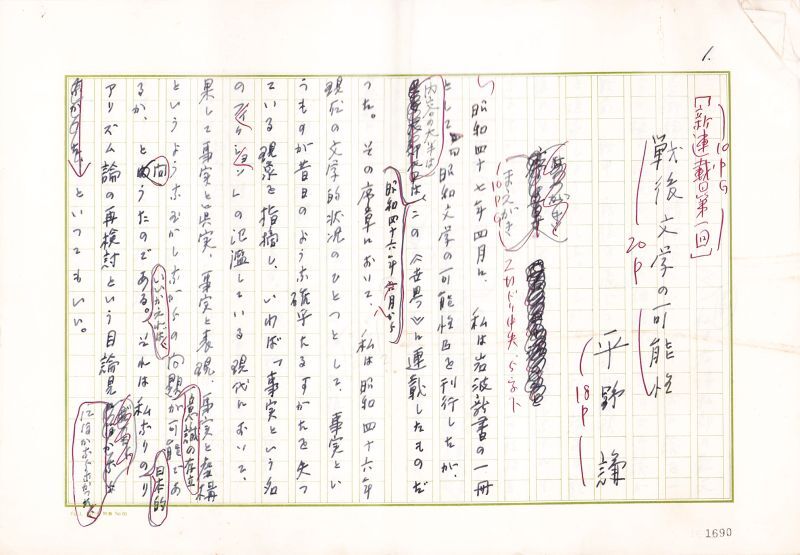 1.
［新連載・第一回］
10P G
戦後文学の可能性
20P
平野謙
18P
まえがき
10P G
2行ドリ中央、5字下ゲ
昭和四十七年四月に、私は岩波新書の一冊
として『昭和文学の可能性』を刊行したが、
内容の大半は
この《世界》に連載したものだ
昭和四十六年 月から
った。その席章において、私は昭和四十六年
現在の文学的状況のひとつとして、事実とい
うものが昔日のような確乎たるすがたを失っ
ている現象を指摘し、いわば「事実という名
のフィクション」の氾濫している現代において、
果して事実と真実、事実と表現、事実と虚構
意識の存立
というようなむかしながらの問題が可能であ
るか、と問うたのである。それは私なりのリ
いいかえれば
日本的
アリズム論の再検討という目論見
にほかならなかった、
といってもいい。
1690